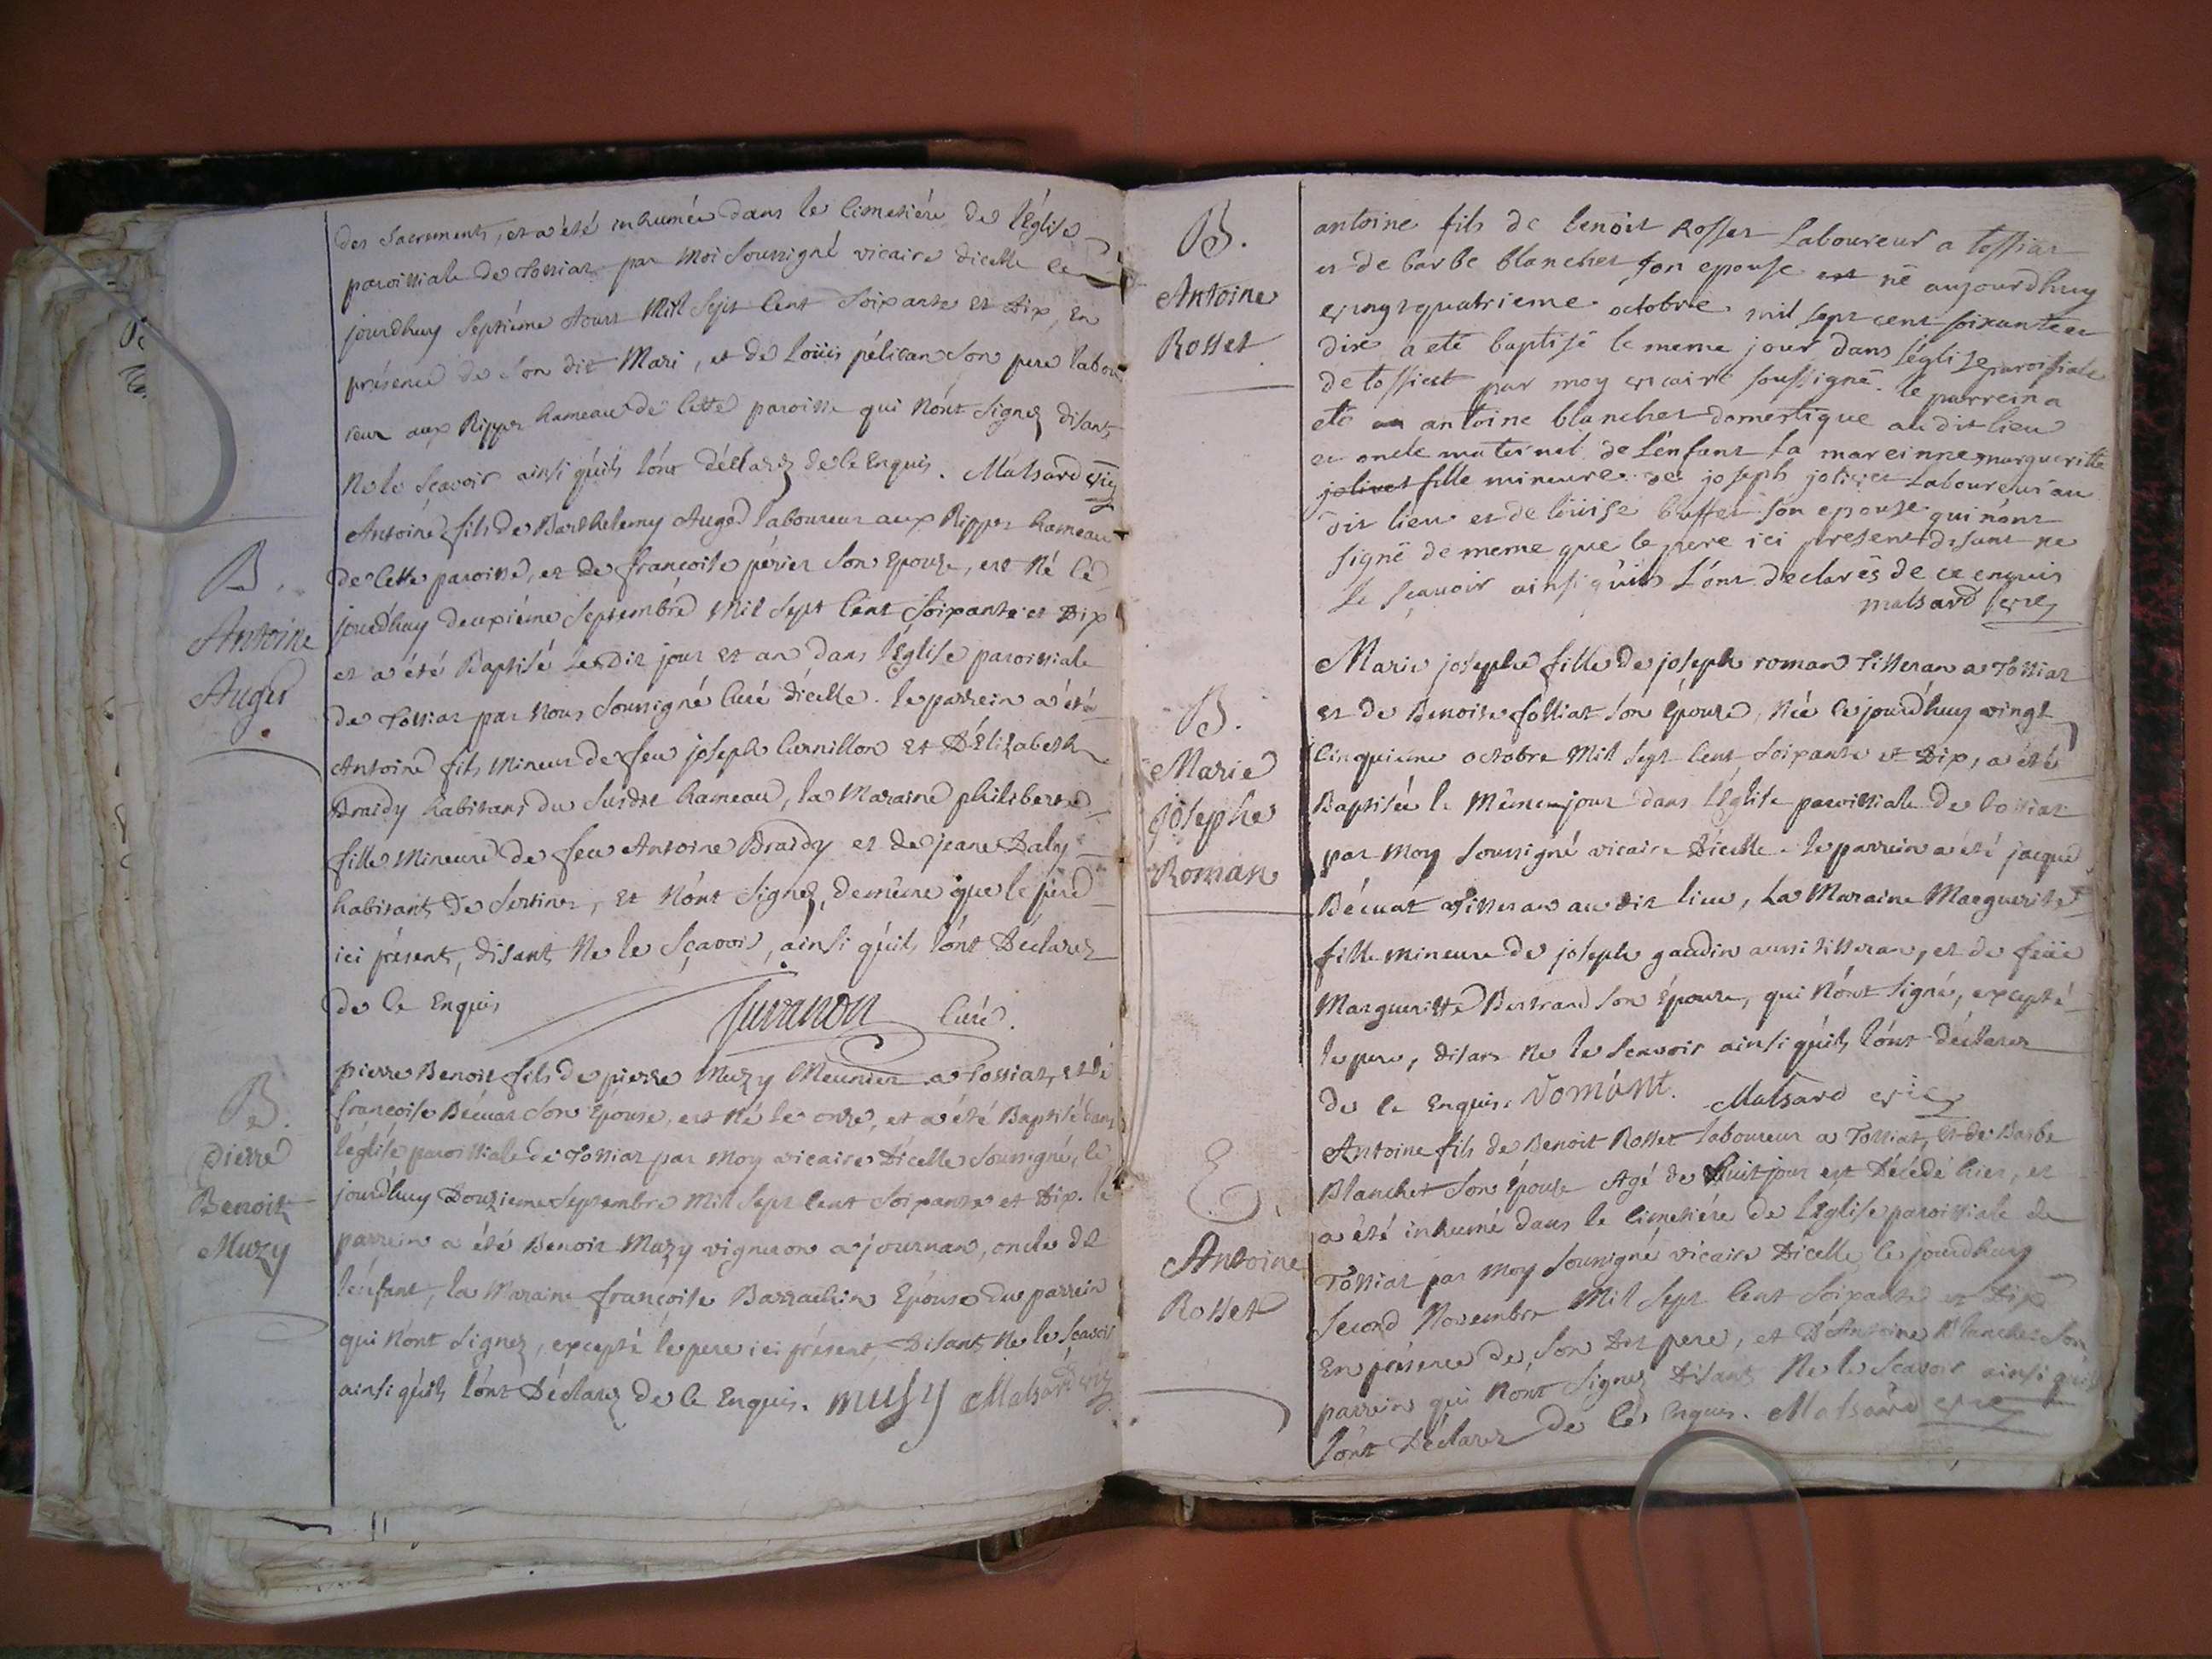 des sacrements, et a été inhumée dans le Cimetiére de l'Église
paroissiale de Tossiat par moi soussigné vicaire dicelle ce
jourdhuy septiéme Aoust Mil sept Cent soixante et Dix, En
présence de son dit Mari, et de Loüis pélican son pere labou
reur aux Rippes hameau de Cette paroisse qui n'ont signez disants
Ne le sçavoir ainsi qu'ils l'ónt déclarez de Ce Enquis. Malsard vic
B.
Antoine
Auger
Antoine fils de Barthelemy Auger laboureur aux Rippes hameau
de Cette paroisse, et de françoise périer son Epouse, est Né Ce
jourdhuy deuxiéme septembre Mil sept Cent soixante et Dix
et a été Baptisé lesdit jour et an dans l'Église paroissiale
de Tossiat par Nous soussigné Curé dicelle. le parrein a été
Antoine fils Mineur de feu joseph Curnillon et D'Elizabeth
Braidy habitans du susdit hameau, la Maraine philiberte
fille Mineure de feu Antoine Braidy et de jeane Daly
habitants de Sertines, Et N'ont signez, de même que le pere
ici présent, disants Ne le Sçavoir, ainsi qu'ils l'ónt Déclarez
de Ce Enquis Curé.
B.
Pierre
Benoit
Muzy
pierre Benoit fils de pierre Muzy Meunier a Tossiat, et de
françoise Bécuat son Epouse, est Né le onze, et a été Baptisé dans
l'église paroissiale de Tossiat par Moy vicaire Dicelle soussigné, le
jourdhuy Douzieme septembre Mil sept Cent soixante et Dix. le
parrein a été Benoit Muzy vigneron a journan, oncle de
l'enfant, la Maraine françoise Barrachin Epouse du parrein
qui n'ont signez, excepté le pere ici présent, Disants Ne le sçavoir
ainsi qu'ils l'ónt Déclarez de Ce Enquis. musy Malsard vic
B.
Antoine
Rosset
antoine fils de benoit Rosset Laboureur a tossiat
et de barbe blanchet son epouse est né aujourdhuy
vingtquatrieme octobre mil sept cent soixante et
dix a eté baptisé le meme jour dans l'église paroissiale
de tossiat par moy vicaire soussigné. le parrein a
eté antoine blanchet domestique audit lieu
et oncle maternel de l'enfant la mareinne marguerite
jolivet fille mineure de joseph jolivet Laboureur au
dit lieu et de loüise buffet son epouse qui n'ont
signé de meme que le pere ici present disant ne
le sçavoir ainsi quils l'ont declarés de ce enquis
malsard vic
B.
Marie
Josephe
Roman
Marie josephe fille de joseph roman Tisseran a Tossiat
et de Benoite folliat son Epouse, Née Cejourdhuy vingt
Cinquiéme octobre Mil sept Cent soixante et Dix, a été
Baptisée le Même jour dans l'Eglise paroissiale de Tossiat
par Moy soussigné vicaire Dicelle. le parrein a été jacque
Bécuat Tisseran au dit lieu, La Maraine Marguerite
fille mineure de joseph gaudin aussi tisseran, et de feüe
Margueritte Bertrand son Epouse, qui N'ónt signé, excepté
le pere, disans Ne le Scavoir ainsi qu'ils l'ónt déclarez
de Ce Enquis. Romant. Malsard vic
E.
Antoine
Rosset
Antoine fils de Benoit Rosset laboureur a Tossiat, et de Barbe
Blanchet son Epouse Agé de huit jour est Décédé hier, et
a été inhumé dans le Cimetiére de l'Eglise paroissiale de
Tossiat par Moy soussigné vicaire Dicelle, le jourdhuy
second Novembre Mil sept Cent soixante et Dix
En présence de son Dit pere, et D'Antoine Blanchet son
parrein qui N'ont signez Disants Ne le Scavoir ainsi qu'ils
l'ónt Déclarez de Ce Enquis. Malsard vic